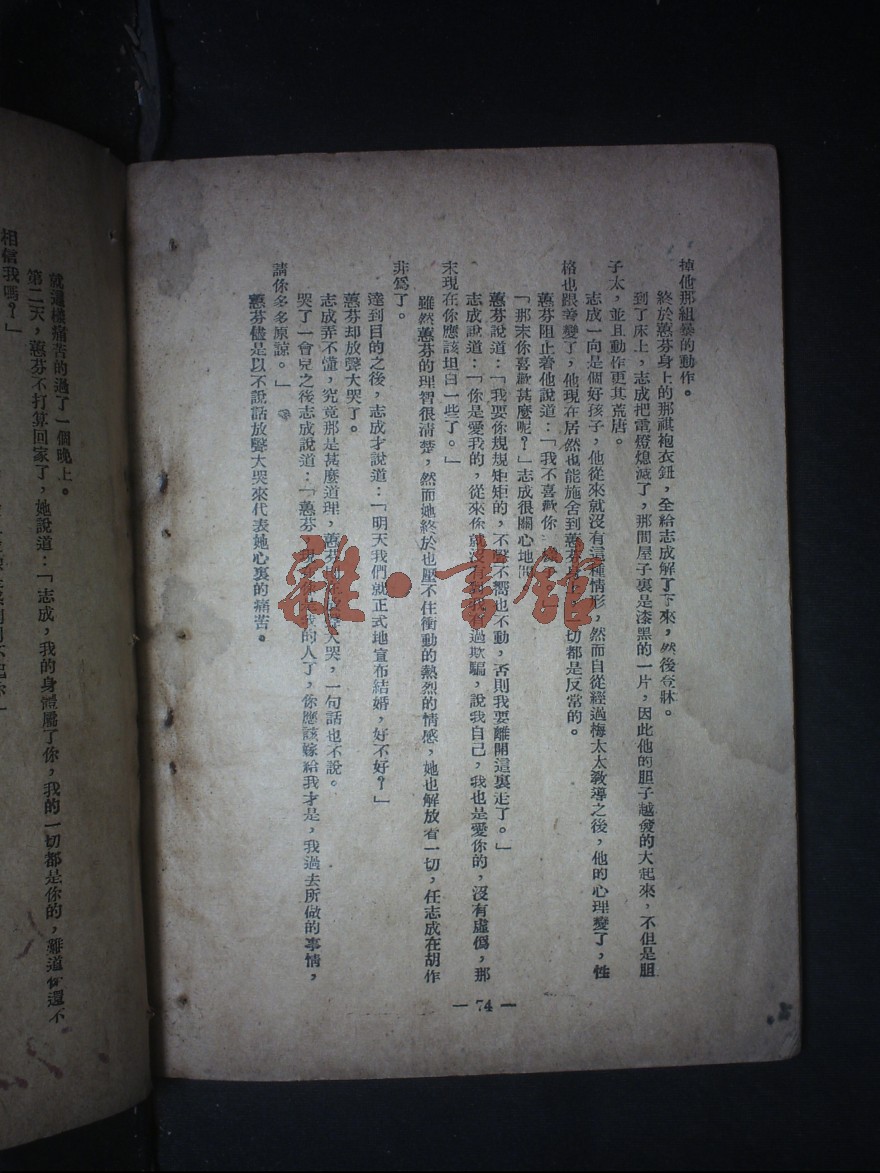 掉他那組暴的動作。
終於蕙芬身上的那祺袍衣鈕，全給志成解了下來，然後登牀。
到了床上，志成把電燈熄滅了，那間屋子裏是漆黑的一片，因此他的胆子越發的大起來，不但是胆
子太，並且動作更其荒唐。
志成一向是個好孩子，他從來就沒有這種情形，然而自從經過梅太太教導之後，他的心理變了，性
格也跟着變了，他現在居然也能施舍到蕙芬 切都是反常的。
蕙芬阻止着他說道：「我不喜歡你
「那末你喜歡甚麼呢？」志成很關心地問
蕙芬說道：「我要你規規矩矩的，不 不嚮也不動，否則我要離開這裏走了。」
志成說道：「你是愛我的，從來你就沒有 我有過欺騙，說我自己，我也是愛你的，沒有虛僞，那
末現在你應該坦白一些了。」
雖然蕙芬的理智很清楚，然而她終於也壓不住衝動的熱烈的情感，她也解放着一切，任志成在胡作
非爲了。
達到目的之後，志成才說道：「明天我們就正式地宣布結婚，好不好？」
蕙芬却放聲大哭了。
志成弄不懂，究竟那是甚麼道理，蕙芬 放聲大哭，一句話也不說。
哭了一會兒之後志成說道：「蕙芬 現 我的人了，你應該嫁給我才是，我過去所做的事情，
請你多多原諒。」
蕙芬儘是以不說話放聲大哭來代表她心裏的痛苦。
— 74 —
就這樣痛苦的過了一個晚上。
第二天，蕙芬不打算回家了，她說道：「志成，我的身體屬了你，我的一切都是你的，難道你還不
相信我嗎？」
雜·書館